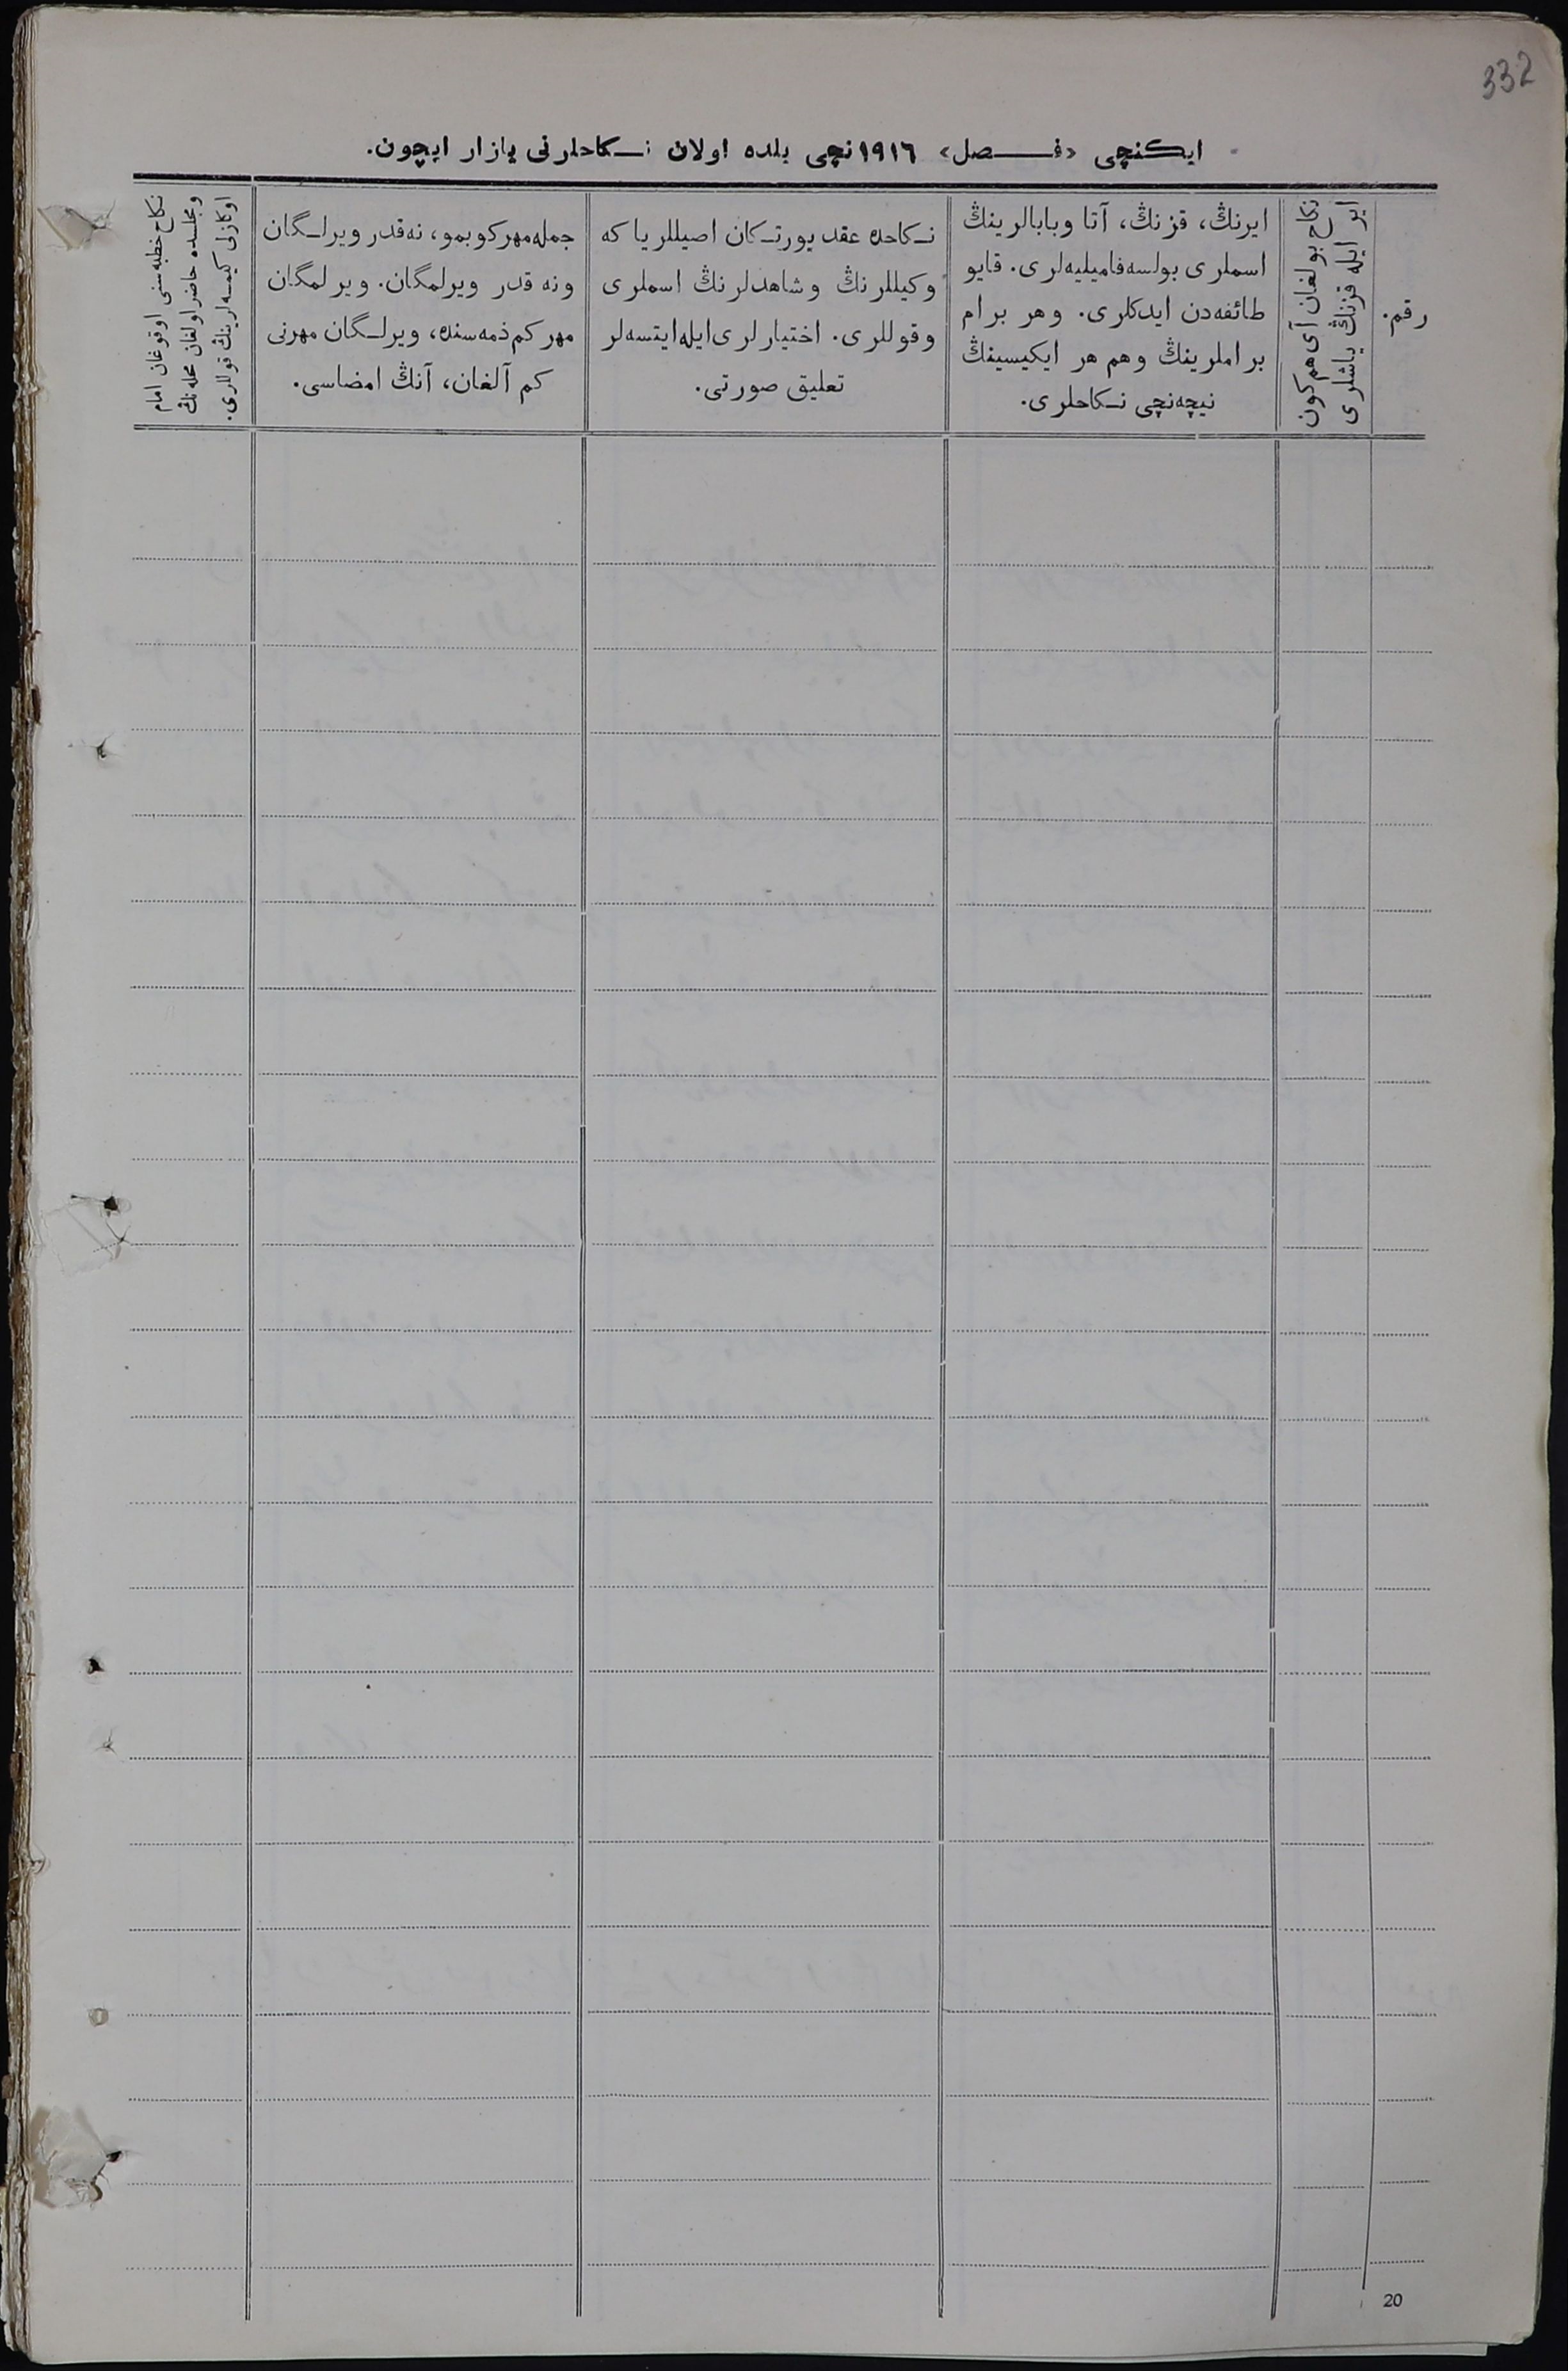 332
ایکنچی «فصل» ١٩١٦نچی یلده اولان نکاحلرنی یازار ایچون.
رقم.
ایر ایله قزنڭ یاشلری
نکاح بولغان آی هم کون
ایرنڭ، قزنڭ، آتا وبابالرینڭ
اسملری بولسه فامیلیه‌لری. قایو
طائفه‌دن ایدکلری. وهر برام
براملرینڭ وهم هر ایکیسینڭ
نیچه‌نچی نکاحلری.
نکاحده عقد یورتکان اصیللر یا که
وکیللرنڭ وشاهدلرنڭ اسملری
وقوللری. اختیارلری ایله ایتسه‌لر
تعلیق صورتی.
جمله مهر کوبمو، نه قدر ویرلگان
ونه قدر ویرلمگان. ویرلمگان
مهر کم ذمه‌سنده، ویرلگان مهرنی
کم آلغان، آنڭ امضاسی.
نکاح خطبه‌سنی اوقوغان امام
ومجلسده حاضر اولغان محله‌نڭ
اوکازلی کیمسه‌لرینڭ قوللاری.
20